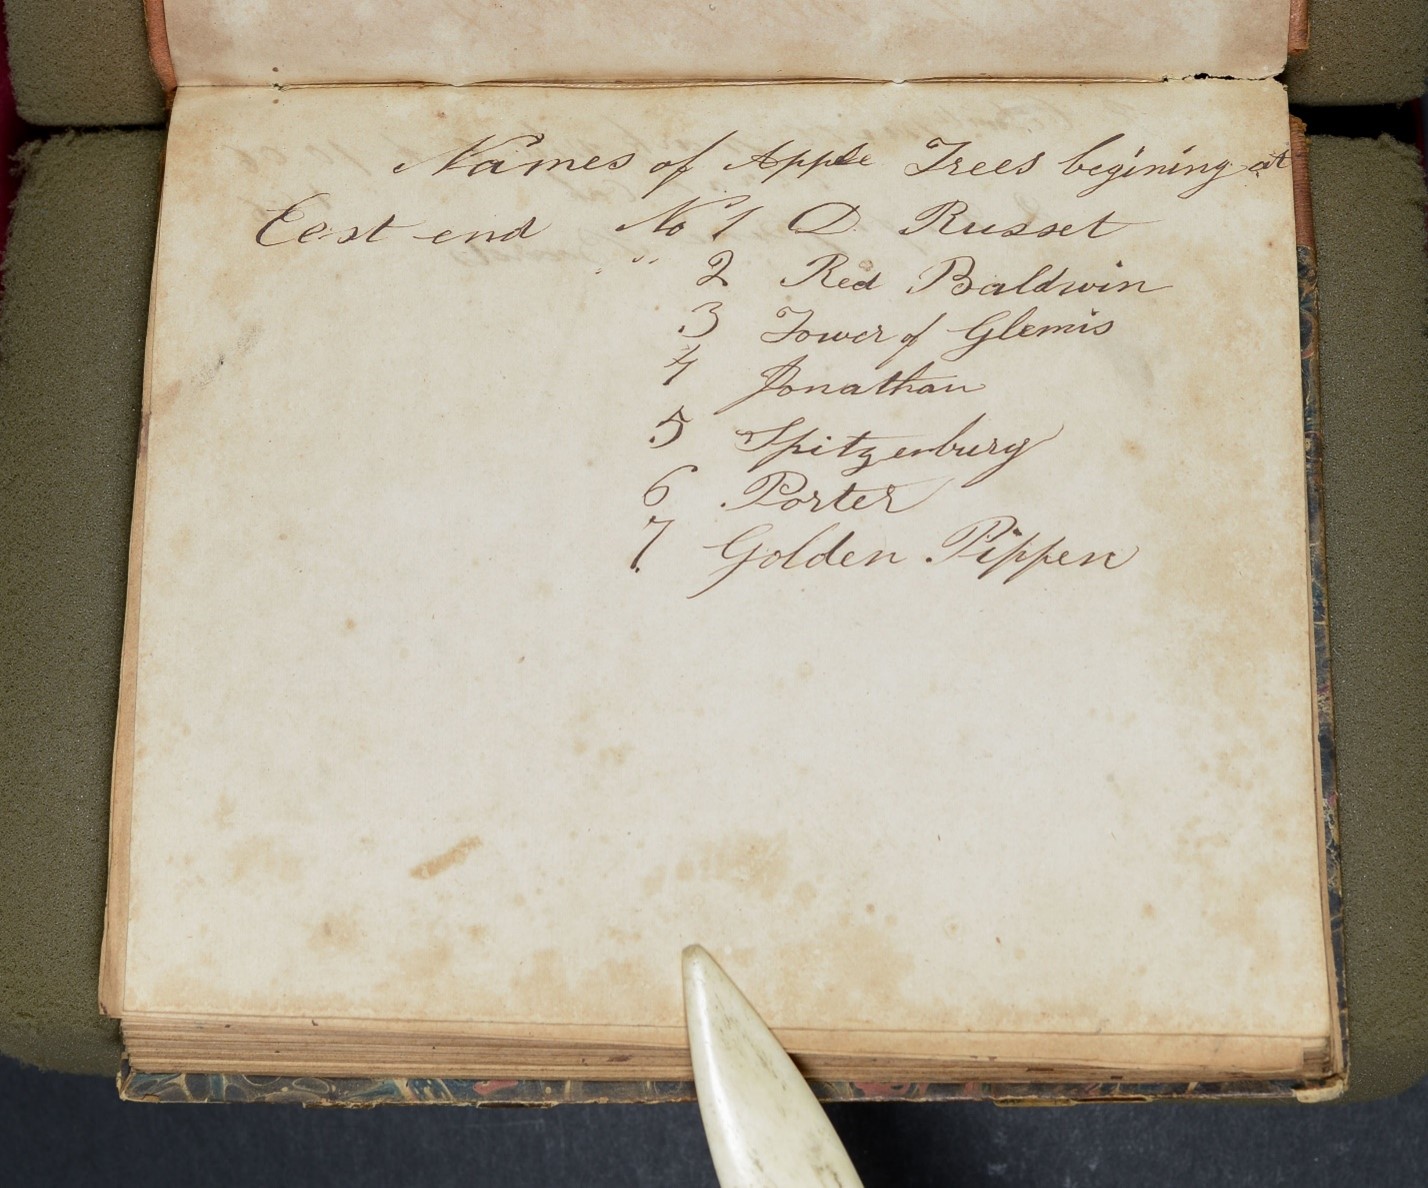 Names of Apple Trees begining at
East end No 1 D. Russet
" 2 Red Baldwin
3 Tower of Glemis
4 Jonathan
5 Spitzenburg
6 Porter
7 Golden Pippen